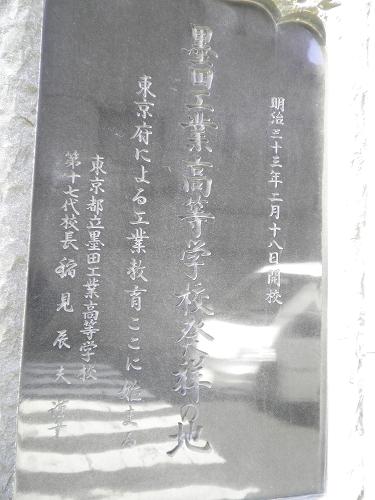 明治三十三年二月十八日開校
墨田工業高等学校発祥の地
東京府による工業教育ここに始まる
東京都立墨田工業高等学校
第十七代校長 稲見辰夫 謹書